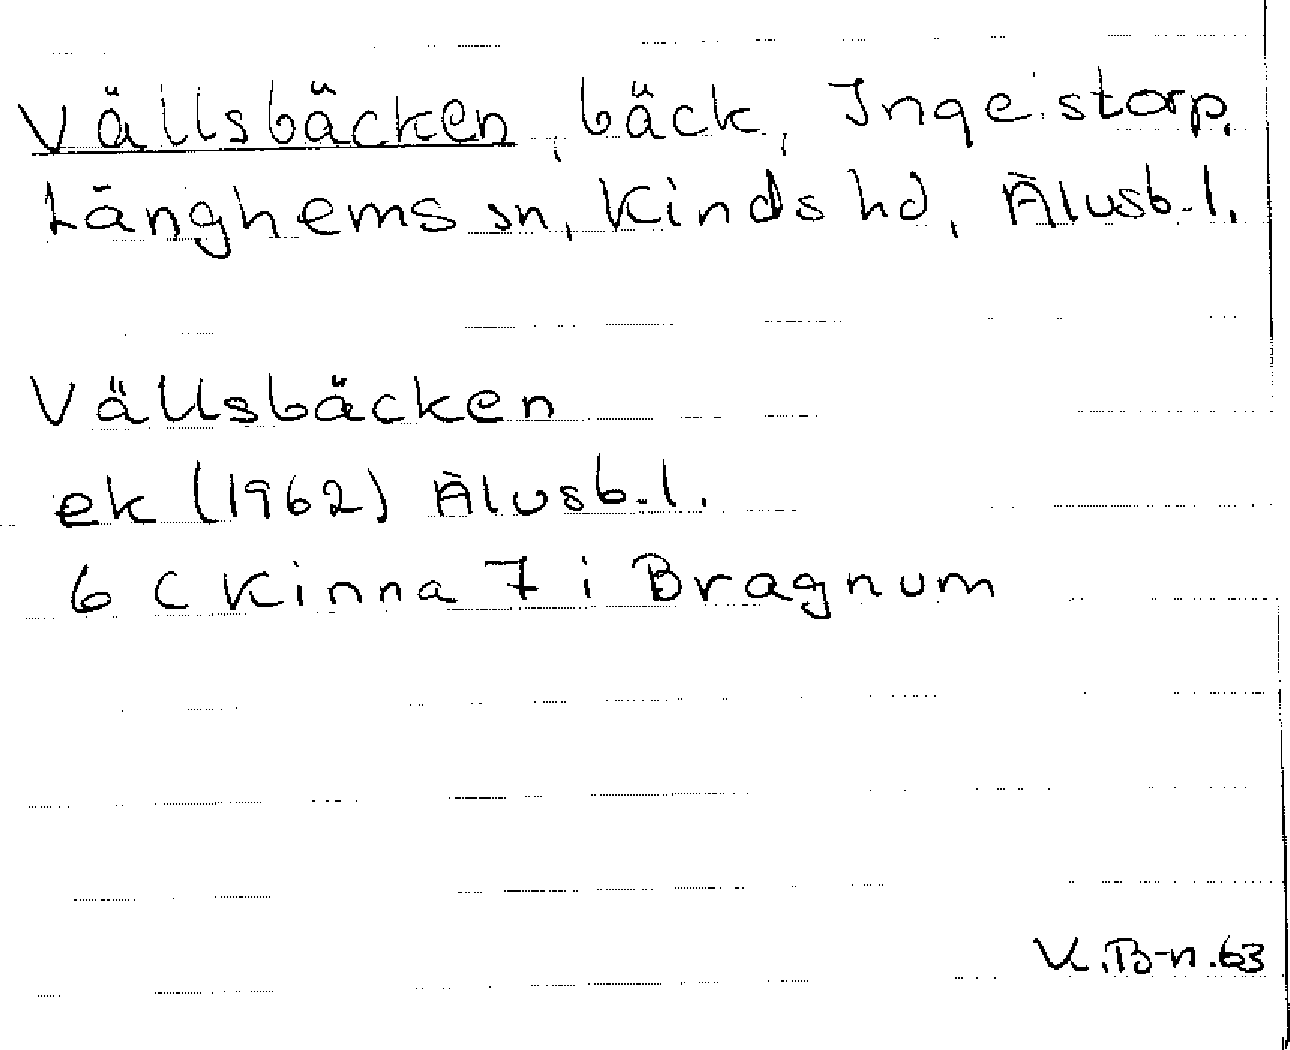 Vällsbäcken, bäck, Ingeistorp,
Länghems sn, Kinds hd, Älvsb.l.
Vällsbäcken
ek (1962) Älvsb.l.
6 C Kinna 7 i Bragnum
V.B-n.63